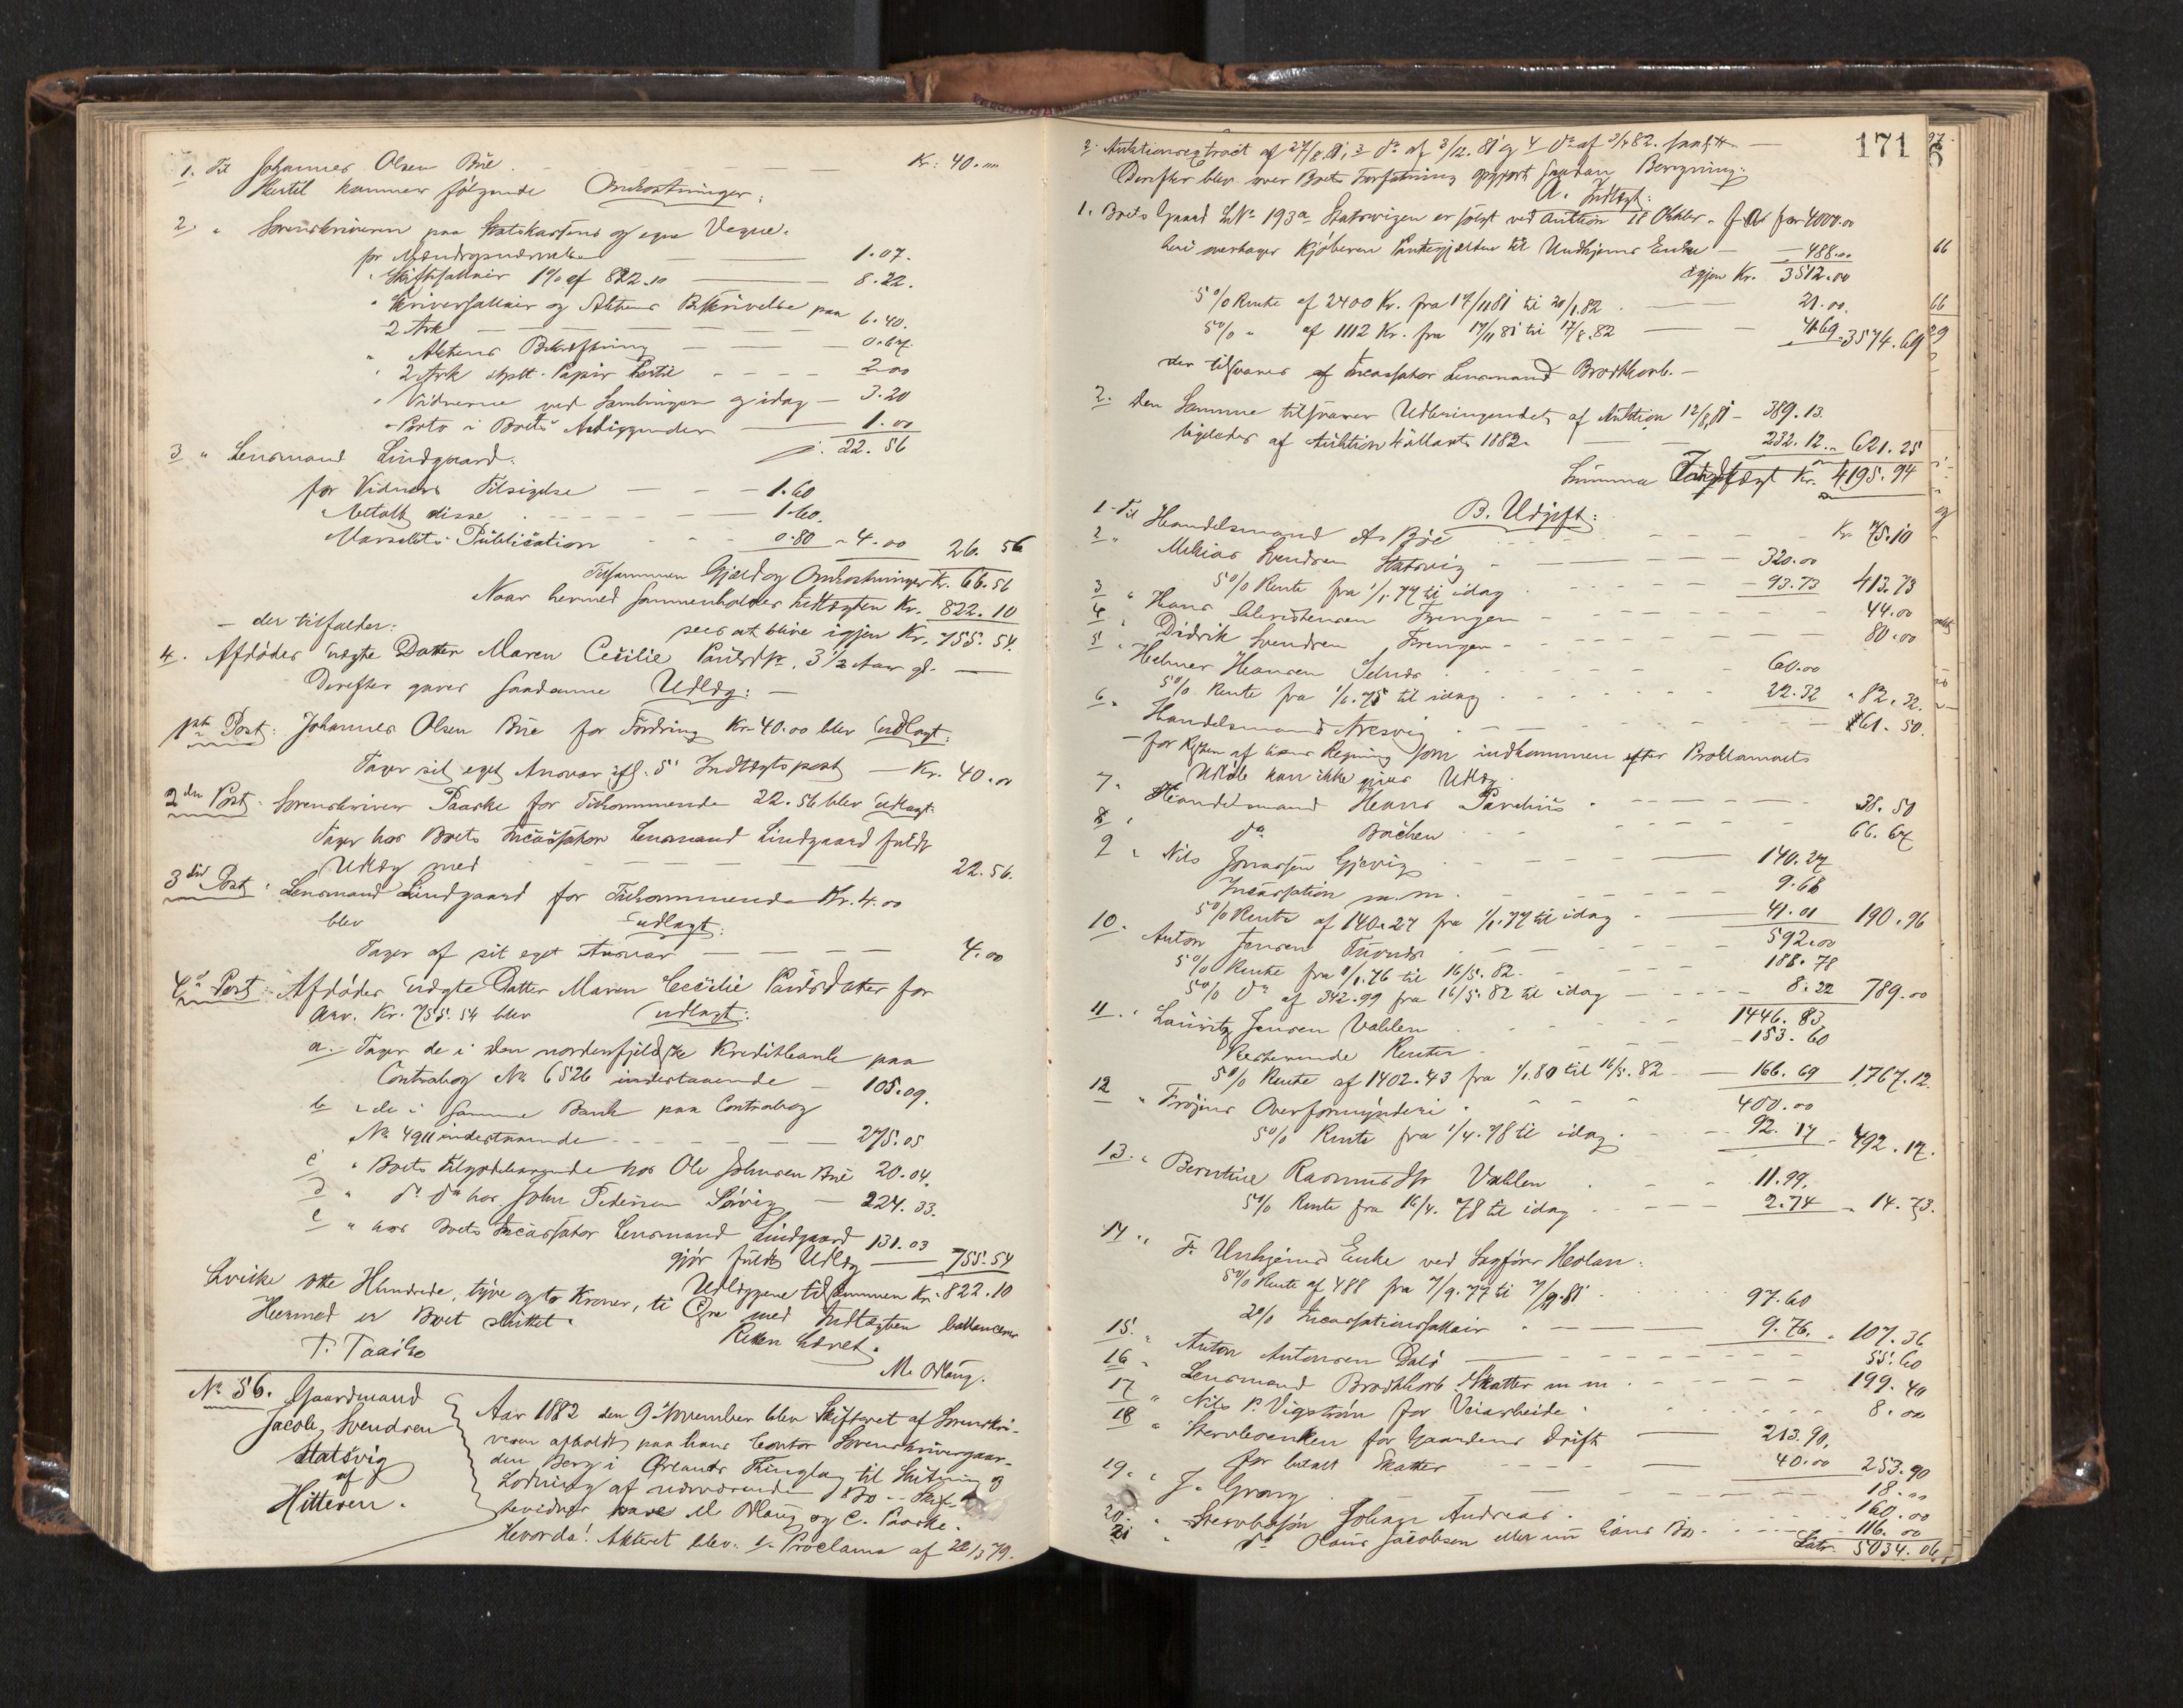 1. Til Johannes Olsen Bue — Kr: 40.00
Hertil kommer følgende Omkostninger:
2. " Sorenskriveren paa Statskassens og egne Vegne.
for — 1.07.
" Skiftesallair 1% af 822.10 — 8.22.
" Skriversallair og Aktens Beskrivelse paa
2 Ark — 6.40.
" Aktens Bekræftning — 0.67.
" 2 Ark stplt. Papir hertil — 2.00
" Vidnerne ved Samlingen og idag — 3.20
" Porto i Boets Anliggender — 1.00
22.56
3 " Lensmand Lindgaard.
for Vidners Tilsigelse — 1.60
" Betalt disse — 1.60.
Publication — 0.80 " 4.00 26.56
Tilsammen Gjæld og Omkostninger Kr. 66.56
Naar hermed sammenholdes Indtægten Kr. 822.10
sees at blive igjen Kr. 755.54.
— der tilfalder:
4. Afdødes uægte Datter Maren Cecilie Paulsdtr. 3 1/2 Aar gl. —
Derefter gaves saadanne Udlæg: —
1ste Post: Johannes Olsen Bue for Fordring Kr. 40.00 blev udlagt:
Tager sit eget Ansvar ifl. 5 Indtægtspost — Kr. 40.00
2den Post: Sorenskriver Paaske for Tilkommende 22.56 blev udlagt:
Tager hos Boets Incassator Lensmand Lindgaard fuldt
Udlæg med — 22.56.
3die Post: Lensmand Lindgaard for Tilkommende Kr. 4.00
blev udlagt:
Tager af sit eget Ansvar — 4.00
4de Post: Afdødes uægte Datter Maren Cecilie Paulsdatter for
Arv. Kr. 755.54 blev udlagt:
a. Tager de i den nordenfjeldske Kreditbank paa
Contrabog No 6526 indestaaende — 105.09.
b " de i samme Bank paa Contrabog
No 4911 indestaaende — 275.05
c " Boets Tilgodehavende hos Ole Johnsen Bue 20.04.
d " do do hos John Pedersen Sørvig — 224.33.
e " hos Boets Incassator Lensmand Lindgaard 131.03
gjør fuldt Udlæg — 755.54
Udlæggene tilsammen Kr. 822.10
hvilke otte Hundrede, tyve og to Kroner, ti Øre med Indtægten ballancerer
Hermed er Boet sluttet. Retten hævet.
T. Paaske M. Maug.
No 56. Gaardmand
Jacob Svendsen
Statsvig
af
Hitteren.
Aar 1882 den 9 November blev Skifteret af Sorenskri-
veren afholdt paa hans Contor Sorenskrivergaar-
den Berg i Ørlands Thinglag til Slutning og
Lodning af nærværende Bo — Skif-
tevidner vare M. Maug og C. Paaske.
Hvorda! Akteret blev: 1. Proclama af 22/3 79.
171
2. Auktionsextract af 27/8.81, 3 do af 3/12.81 og 4 do af 3/7 82.
Derefter blev over Boets Forfatning opgjort saadan Beregning:
A. Indtægt:
1. Boets Gaard LNo 193a Statsvigen er solgt ved Auktion 18 Oktbr. f. A. for 4000.00
heri overtager Kjøberen Pantegjælden til Unhjems Enke — 488.00
igjen Kr. 3512.00
5% Rente af 2400 Kr. fra 17/11 81 til 20/1.82 — 21.00.
5% " af 1112 Kr. fra 17/11 81 til 17/8.82 — 41.69 " 3574.69
der tilsvares af Incassator Lensmand Brodtkorb. —
2. Den Samme tilsvarer Udbringendet af Auktion 12/8,81 — 389.13.
ligeledes af Auktion 4 Marts 1882. — 232.12 " 621.25
Summa Indtægt Kr. 4195.94
B. Udgift:
1 Til Handelsmand A. Bøe — Kr. 75.10
2 " Mikias Svendsen Statsvig — 320.00
5% Rente fra 1/1.77 til idag — 93.73 413.73
3 " Hans Christensen Frengen — 44.00
4 " Didrik Svendsen Frengen — 80.00
5 " Helmer Hansen — 60.00
5% Rente fra 1/6.75 til idag — 22.32 " 82.32.
6 " Handelsmand Aresvig — 161.50.
— for Resten af hans Regning som indkommen efter Proklamaets
Udløb kan ikke gives Udlæg.
7 " Handelsmand Hans Parelius — 38.50
8 " do Buchen — 66.67
9 " Nils Jonassen Gjevig — 140.27
Incassation m.m. — 9.68
5% Rente af 140.27 fra 1/1.77 til idag — 41.01 190.96
10. Anton Jensen — 592.00
5% Rente fra 1/1.76 til 16/5.82. — 188.78
5% do af 342.99 fra 16/5.82 til idag — 8.22 789.00
11. " Lauritz Jensen Vahlen — 1446.83
Resterende Renter — 153.60
5% Rente af 1402.43 fra 1/1.80 til 16/5.82 — 166.69 1767.12.
12 " Frøjens Overformynderi — 400.00
5% Rente fra 1/4.78 til idag. — 92.17 " 492.17.
13. " Berntine Rasmusdtr Vahlen — 11.99.
5% Rente fra 16/4.78 til idag — 2.74 " 14.73.
14 " F. Unhjems Enke ved Sagfører Holan:
5% Rente af 488 fra 7/9.77 til 7/9.81 — 97.60
2% Incassationssallair — 9.76. " 107.36
15. " Anton Antonsen Dalø — 55.60
16 " Lensmand Brodtkorb Skatter m m — 199.40
17 " Nils P. Vigstrøm for Veiarbeide. — 8.00
18 " Stervboenken for Gaardens Drift — 213.90,
for betalt Skatter — 40.00 253.90
19. " J. Grong — 18.00
20. " Stervbosøn Johan Andreas. — 160.00
21 " do Olaus Jacobsen eller nu hans Bo. — 116.00
Latr. 5034.06